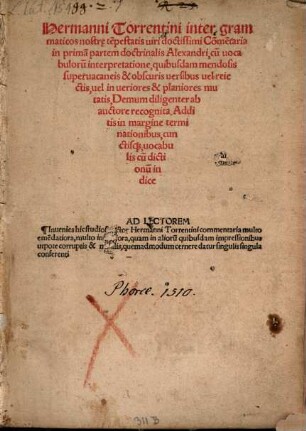 Hermanni Torrentini inter gram
maticos nostrę tēpestatis uiri doctissimi Cōmētaria
in primā partem doctrinalis Alexandri, cū uoca
bulorū interpretatione, quibusdam mendosis
superuacaneis & obscuris uersibus uel reie
ctis, uel in ueriores & planiores mu
tatis, Demum diligenter ab
auctore recognita. Addi
tis in margine termi
nationibus, cun
ctisqȝ uocabu
lis cū dicti
onū in
dice
AD LECTOREM
Inuenies hic studiose Hermanni Torrentini commentaria multo
emēdatiora, multo quam in aliorū quibusdam impressionibus
utpote corruptis & quemadmodum cernere datur singulis singula
conferenti
Phorce. 1510.